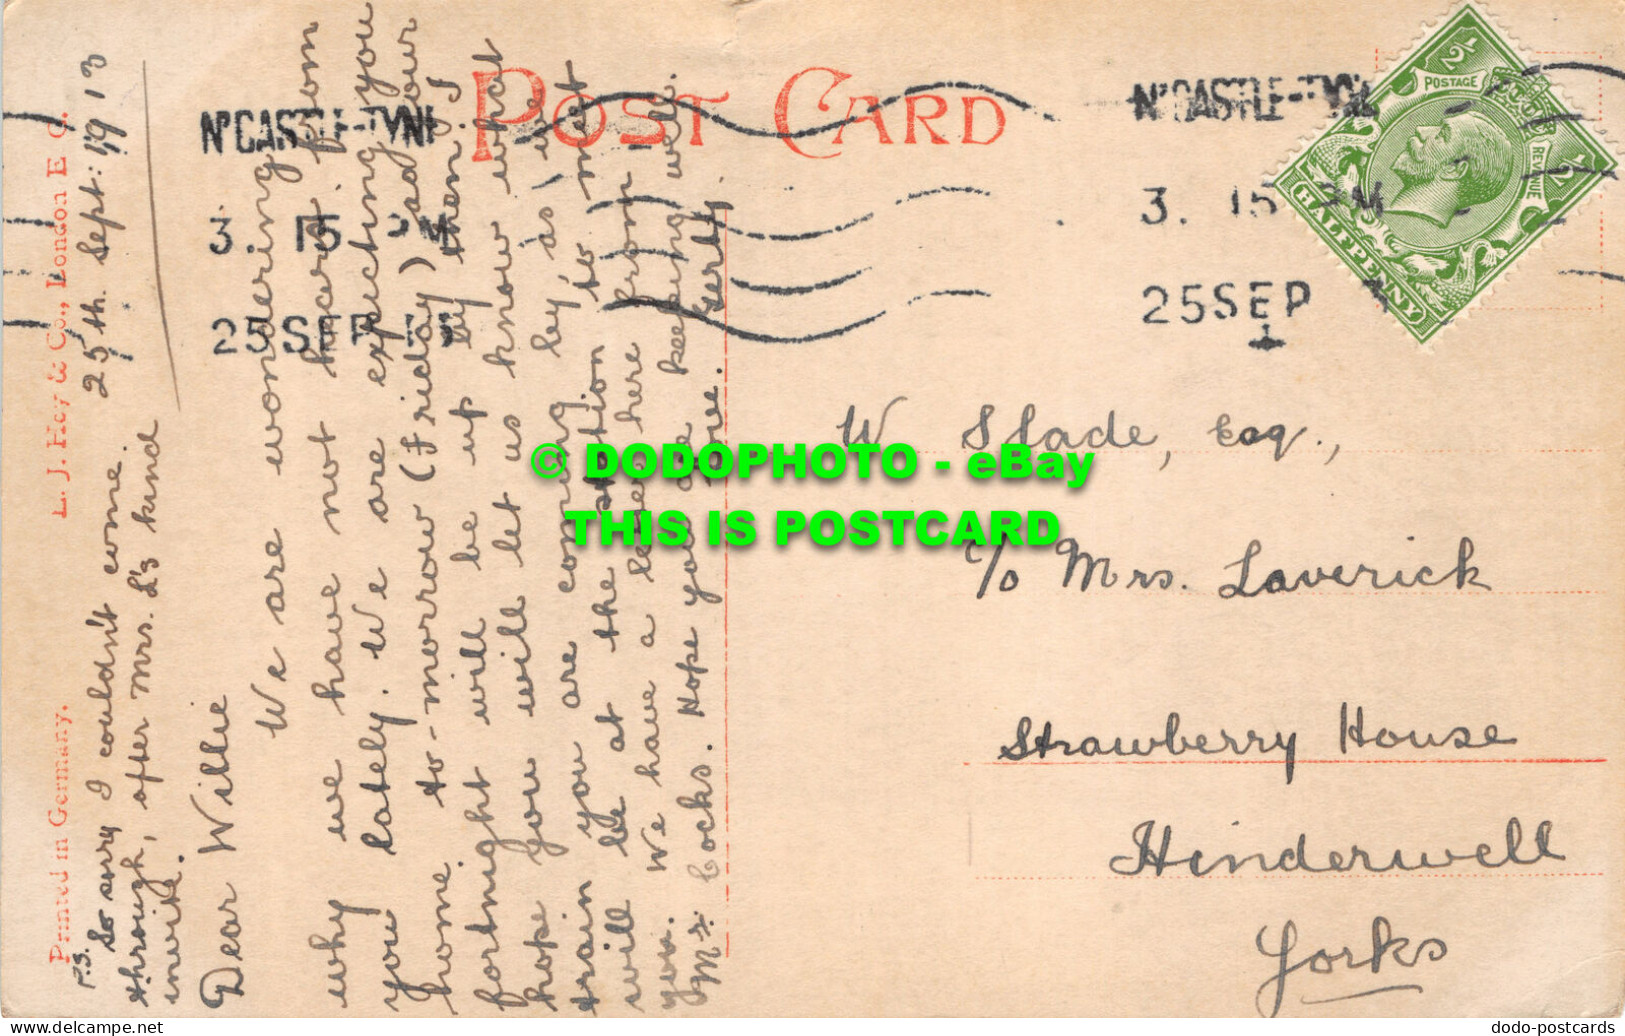 POST CARD
N'CASTLE-TYNE
3. 15 PM
25 SEP
N'CASTLE-TYNE
3. 15 PM
25 SEP
1
POSTAGE
REVENUE
1/2
1/2
HALFPENNY
Printed in Germany.
L. J. Hey & Co., London E C.
25th. Sept: 1913
P.S. So sorry I couldn't come
through, after Mrs. L's kind
invite.
Dear Willie
We are wondering
why we have not heard from
you lately. We are expecting you
home to-morrow (Friday) as your
fortnight will be up by then. I
hope you will let us know what
train you are coming by as we
will be at the station to meet
you. We have a letter here from
Mrs. Cocks. Hope you are keeping well.
Love. Gerty
W Slade, Esq.,
c/o Mrs. Laverick
Strawberry House
Hinderwell
Yorks
© DODOPHOTO - eBay
THIS IS POSTCARD
dodo-postcards
delcampe.net